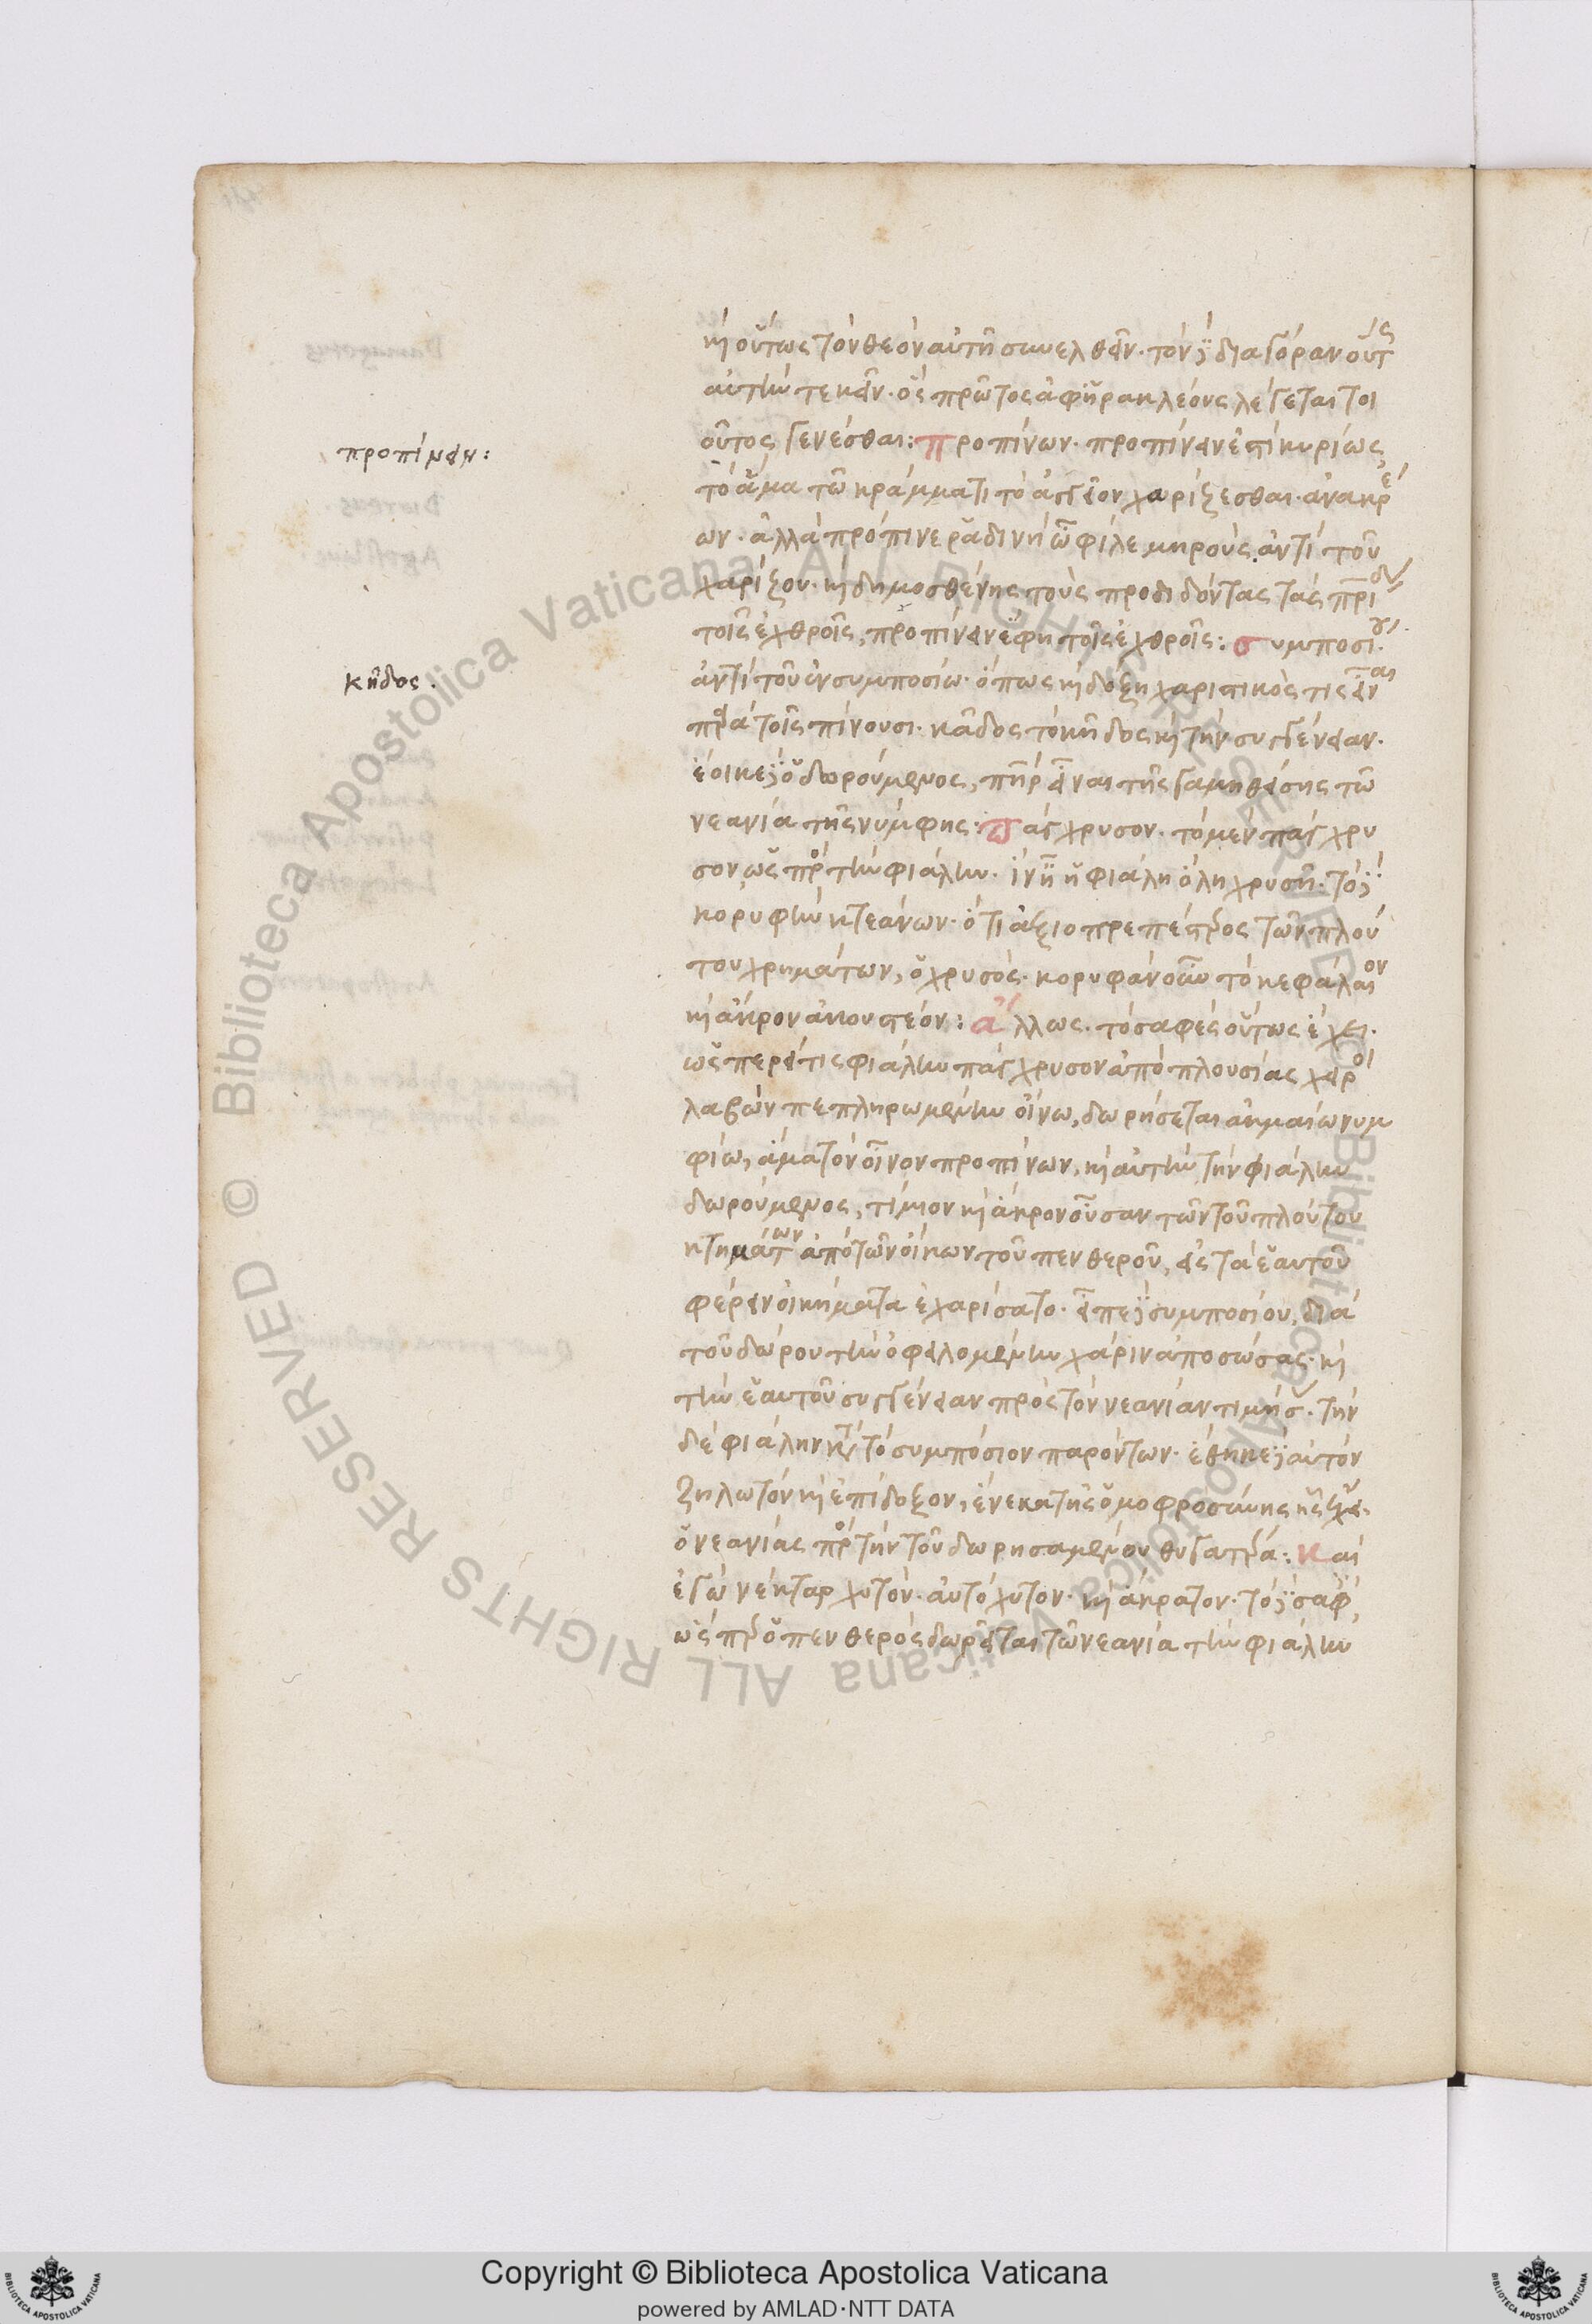 καὶ οὕτως τὸν θεὸν αὐτῇ συνελθεῖν. τὸν δὲ διαγόραν οὕτως
αὐτὴν τεκεῖν. ὃς πρῶτος ἀφ' ἡρακλέους λέγεται τοι
οὗτος γενέσθαι: προπίνων. προπίνειν ἐστὶ κυρίως
προπίνειν:
τὸ ἅμα τῶ κράμματι τὸ ἀγγεῖον χαρίζεσθαι. ἀνακρέ
ων. ἀλλὰ πρόπινε ῥαδινὴ ὦ φίλε μηρούς. ἀντὶ τοῦ
χαρίζου. καὶ δημοσθένης τοὺς προδιδόντας τὰς πρίδας
τοῖς ἐχθροῖς, προπίνειν ἔφη τοῖς ἐχθροῖς: συμποσίου.
κῆδος.
ἀντὶ τοῦ ἐν συμποσίω. ὅπως καὶ δόξη χαριστικός τις εἶναι
παρὰ τοῖς πίνουσι. κᾶδος τὸ κῆδος καὶ τὴν συγγένειαν.
ἔοικε δὲ ὁ δωρούμενος, πατὴρ εἶναι τῆς γαμηθείσης τῶ
νεανία τῆς νύμφης: πάγχρυσον. τὸ μὲν πάγχρυ
σον, ὡς πρὸς τὴν φιάλην. ἵν' ῇ ἡ φιάλη ὅλη χρυσῆ. τὸ δὲ
κορυφὴν κτεάνων. ὅτι ἀξιοπρεπέστερος τῶν τοῦ πλού
του χρημάτων, ὁ χρυσός. κορυφὰν οὖν τὸ κεφάλαιον
καὶ ἄκρον ἀκουστέον: ἄλλως. τὸ σαφὲς οὕτως ἔχει.
ὥσπερ εἴ τις φιάλην πάγχρυσον ἀπὸ πλουσίας χειρὸς
λαβὼν πεπληρωμένην οἴνω, δωρήσεται ἀκμαίω νυμ
φίω, ἅμα τὸν οἶνον προπίνων, καὶ αὐτὴν τὴν φιάλην
δωρούμενος, τίμιον καὶ ἄκρον οὖσαν τῶν τοῦ πλούτου
κτημάτων ἀπὸ τῶν οἴκων τοῦ πενθεροῦ, εἰς τὰ ἑαυτοῦ
φέρειν οἰκήματα ἐχαρίσατο. εἶπε δὲ συμποσίου, διὰ
τοῦ δώρου τὴν ὀφειλομένην χάριν ἀποσώσας. καὶ
τὴν ἑαυτοῦ συγγένειαν πρὸς τὸν νεανίαν τιμήσας. τὴν
δὲ φιάλην κατὰ τὸ συμπόσιον παρόντων. ἔθηκε δὲ αὐτὸν
ζηλωτὸν καὶ ἐπίδοξον, ἕνεκα τῆς ὁμοφροσύνης ἧς ἔχει
ὁ νεανίας πρὸς τὴν τοῦ δωρησαμένου θυγατέρα: καὶ
ἐγὼ νέκταρ χυτόν. αὐτόχυτον. καὶ ἄκρατον. τὸ δὲ σαφές,
ὥσπερ ὁ πενθερὸς δωρεῖται τῶ νεανία τὴν φιάλην
Copyright © Biblioteca Apostolica Vaticana
powered by AMLAD·NTT DATA